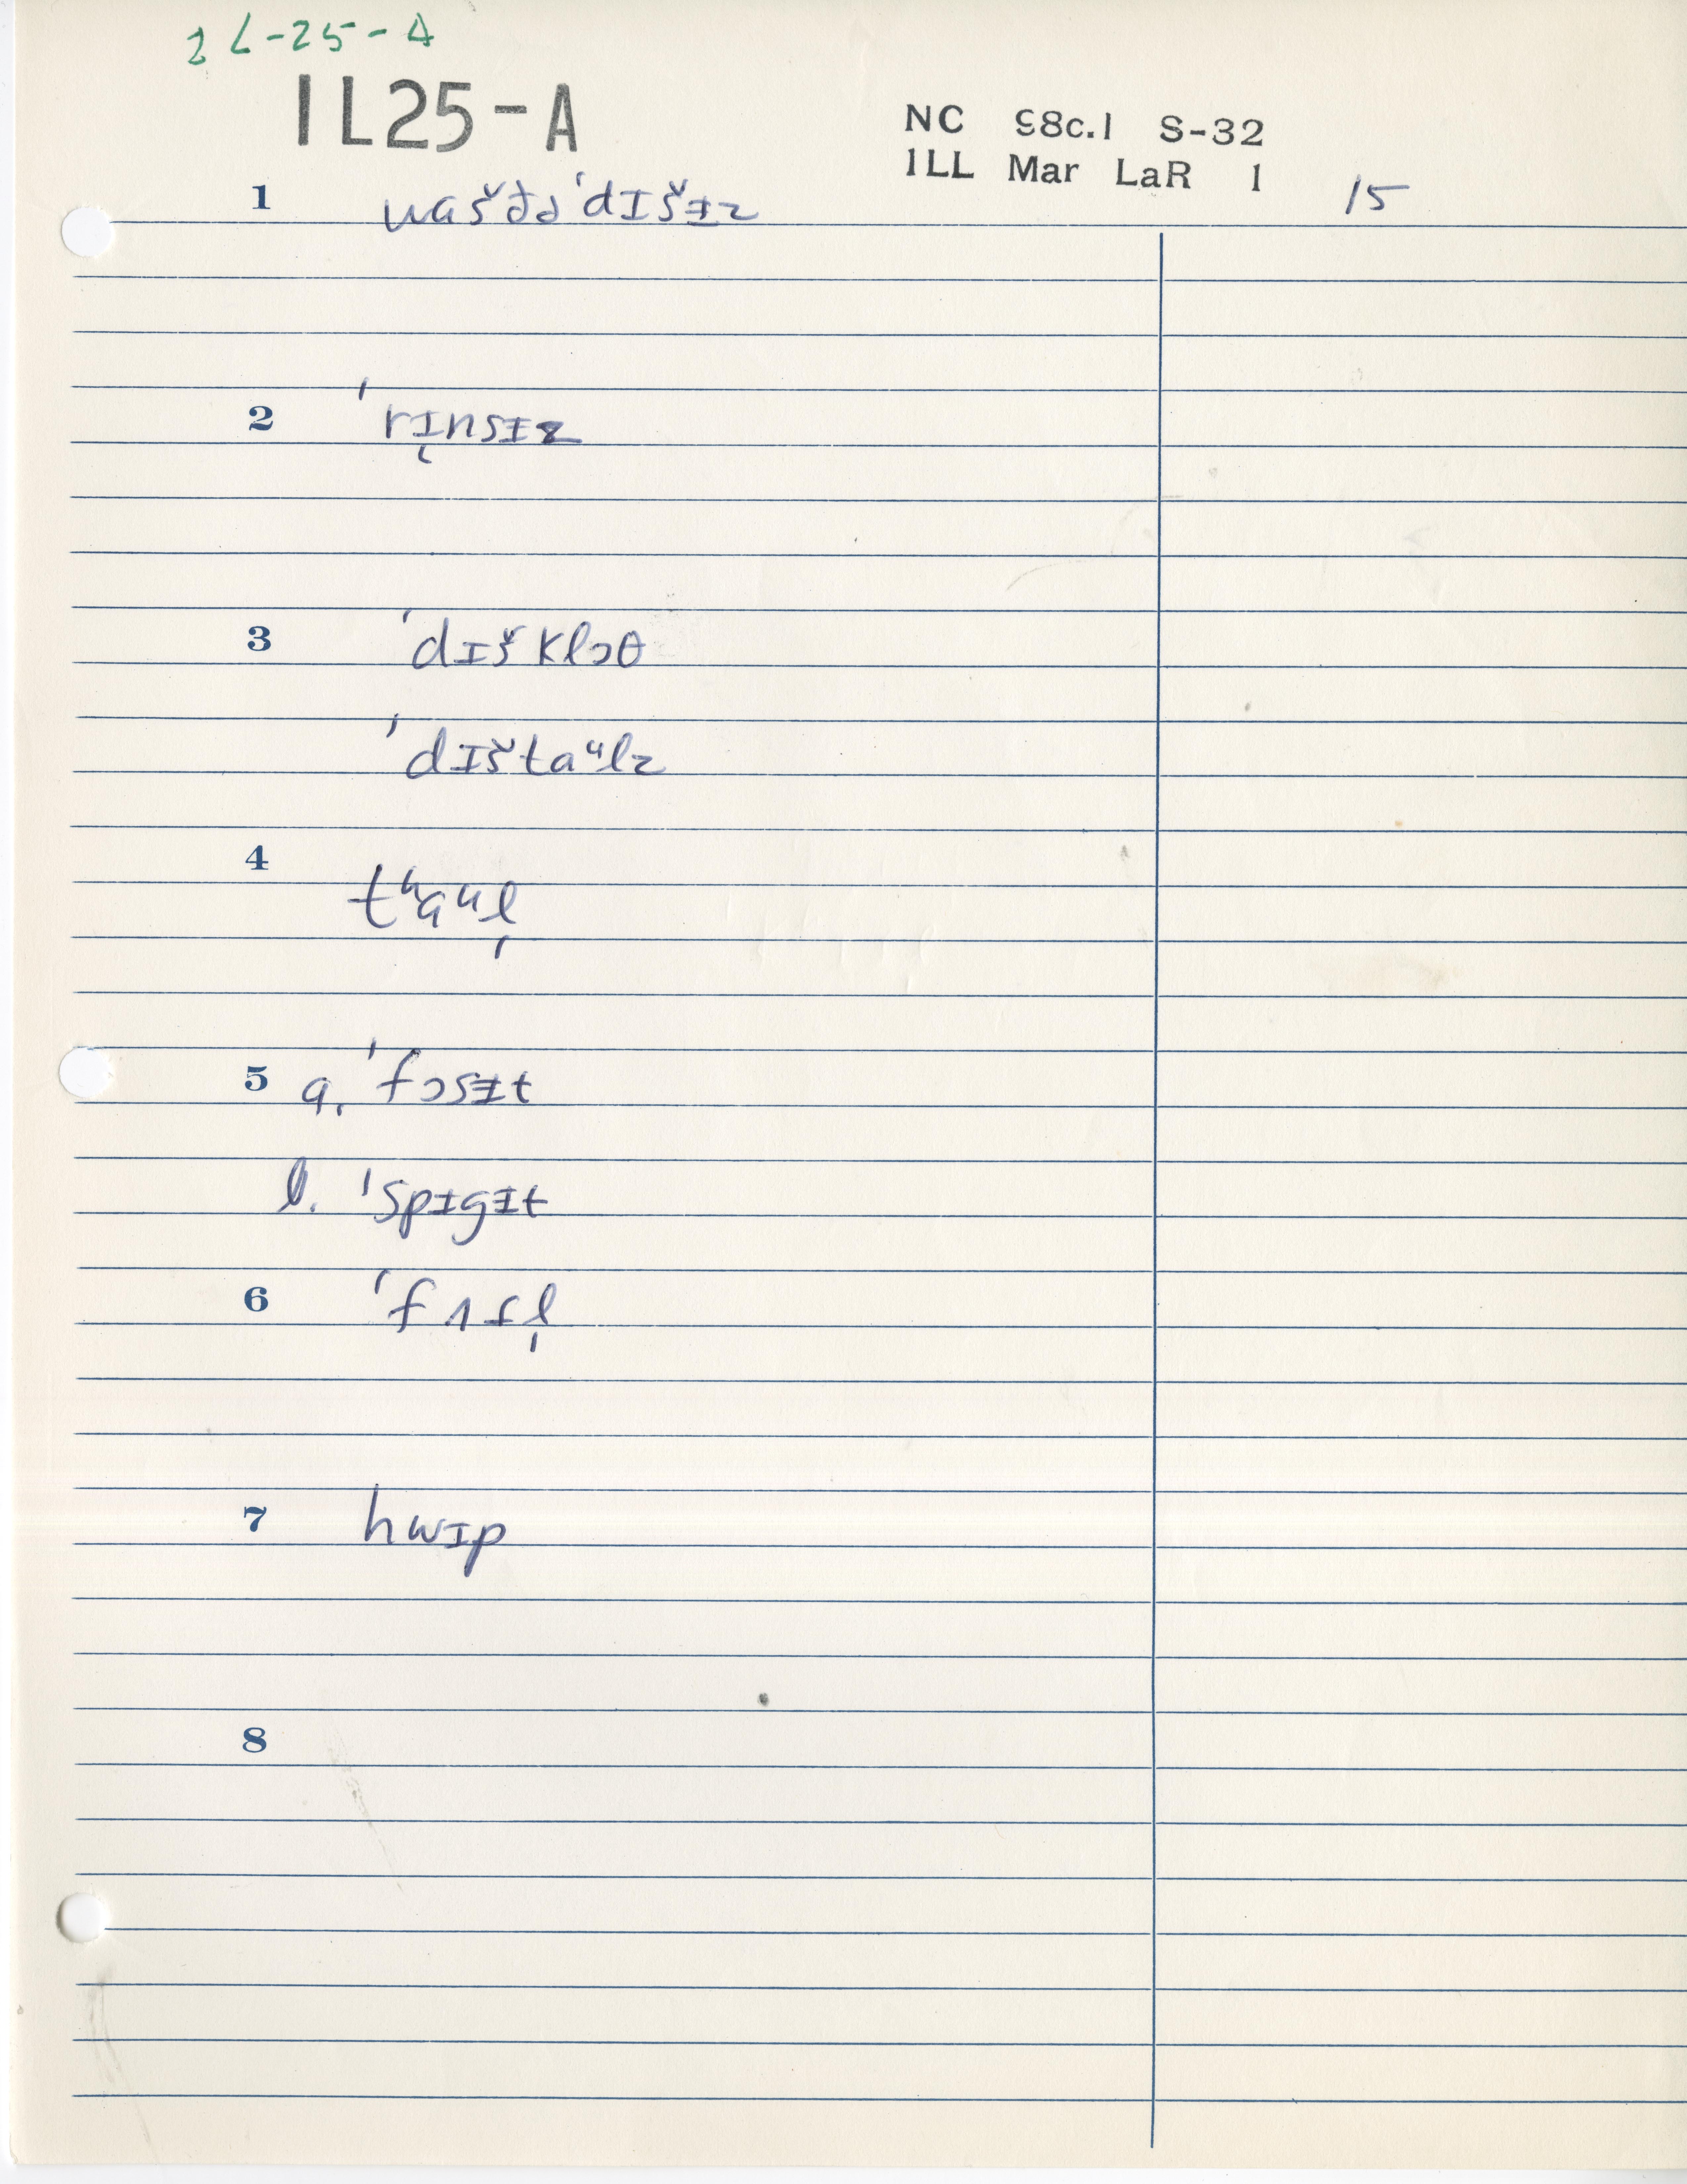 IL-25-A
IL25-A
NC 98c.1 S-32
ILL Mar LaR 1
15
1 waš ðə ˈdɪšɪz
2 ˈrɪ̨nsɪz
3 ˈdɪš klɔθ
ˈdɪš taᵘlz
4 tʰaᵘl̩
5 a. ˈfɔsɪt
b. ˈspɪgɪt
6
7 hwɪp
8